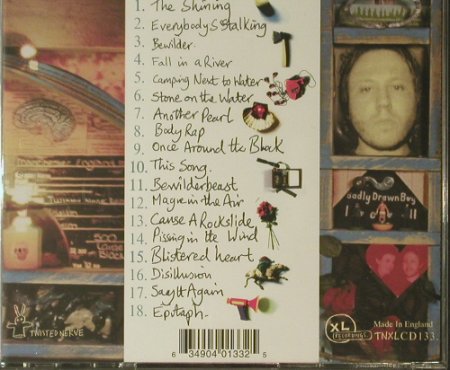 1. The Shining
2. Everybody's Stalking
3. Bewilder
4. Fall in a River
5. Camping Next to Water
6. Stone on the Water
7. Another Pearl
8. Body Rap
9. Once Around the Block
10. This Song
11. Bewilderbeast
12. Magic in the Air
13. Cause A Rockslide
14. Pissing in the Wind
15. Blistered heart
16. Disillusion
17. Say It Again
18. Epitaph
TWISTED NERVE
6 34904 01332 5
oadly Drawn Boy
XL
RECORDINGS
Made In England
TNXLCD133